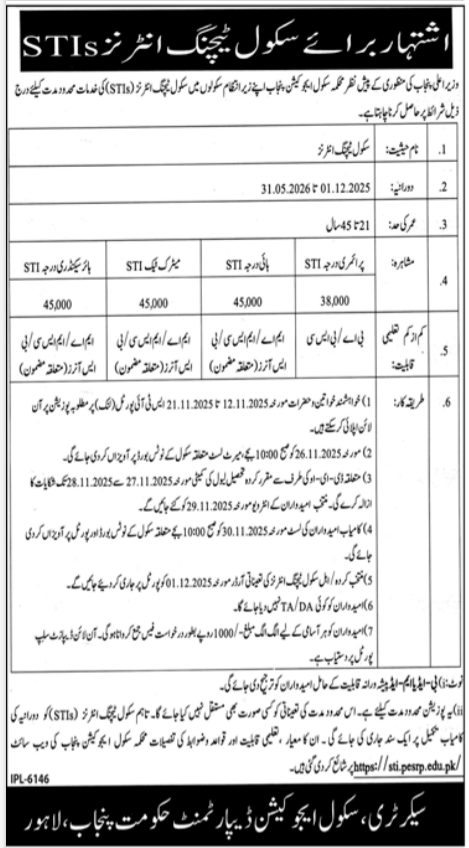 اشتہار برائے سکول ٹیچنگ انٹرنز STIs
وزیر اعلیٰ پنجاب کی منظوری کے پیش نظر محکمہ سکول ایجوکیشن پنجاب اپنے زیر انتظام سکولوں میں سکول ٹیچنگ انٹرنز (STIs) کی خدمات محدود مدت کیلئے درج
ذیل شرائط پر حاصل کرنا چاہتا ہے۔
1. نام حیثیت: سکول ٹیچنگ انٹرنز
2. دورانیہ: 01.12.2025 تا 31.05.2026
3. عمر کی حد: 21 تا 45 سال
4. مشاہرہ: پرائمری درجہ STI ہائی درجہ STI میٹرک ٹیک STI ہائر سیکنڈری درجہ STI
38,000 45,000 45,000 45,000
5. کم از کم تعلیمی قابلیت: بی اے/بی ایس سی ایم اے/ایم ایس سی/بی ایم اے/ایم ایس سی/بی ایم اے/ایم ایس سی/بی
ایس آنرز (متعلقہ مضمون) ایس آنرز (متعلقہ مضمون) ایس آنرز (متعلقہ مضمون)
6. طریقہ کار: 1) خواہشمند خواتین و حضرات مورخہ 12.11.2025 تا 21.11.2025 ایس ٹی آئی پورٹل (لنک) پر مطلوبہ پوزیشن پر آن
لائن اپلائی کر سکتے ہیں۔
2) مورخہ 26.11.2025 کو صبح 10:00 بجے، میرٹ لسٹ متعلقہ سکول کے نوٹس بورڈ پر آویزاں کر دی جائے گی۔
3) متعلقہ ڈی-ای-او کی طرف سے مقرر کردہ تحصیل لیول کی کمیٹی مورخہ 27.11.2025 سے 28.11.2025 تک شکایات کا
ازالہ کرے گی۔ منتخب امیدواران کے انٹرویو مورخہ 29.11.2025 کو کئے جائیں گے۔
4) کامیاب امیدواران کی لسٹ مورخہ 30.11.2025 کو صبح 10:00 بجے متعلقہ سکول کے نوٹس بورڈ اور پورٹل پر آویزاں کر دی
جائے گی۔
5) منتخب کردہ/اہل سکول ٹیچنگ انٹرنز کی تعیناتی آرڈر مورخہ 01.12.2025 کو پورٹل پر جاری کر دیئے جائیں گے۔
6) امیدواران کو کوئی TA/DA نہیں دیا جائے گا۔
7) امیدواران کو ہر آسامی کے لیے الگ الگ مبلغ -/1000 روپے بطور درخواست فیس جمع کروانا ہوگی۔ آن لائن ڈیپازٹ سلپ
پورٹل پر دستیاب ہے۔
نوٹ: i) بی-ایڈ یا ایم-ایڈ پیشہ ورانہ قابلیت کے حامل امیدواران کو ترجیح دی جائے گی۔
ii) یہ پوزیشن محدود مدت کیلئے ہے۔ اس محدود مدت کی تعیناتی کو کسی صورت بھی مستقل نہیں کیا جائے گا۔ تاہم سکول ٹیچنگ انٹرنز (STIs) کو دورانیہ کی
کامیاب تکمیل پر ایک سند جاری کی جائے گی۔ ان کا معیار، تعلیمی قابلیت اور قواعد و ضوابط کی تفصیلات محکمہ سکول ایجوکیشن پنجاب کی ویب سائٹ
https://sti.pesrp.edu.pk/ پر شائع کر دی گئی ہیں۔
IPL-6146
سیکرٹری، سکول ایجوکیشن ڈیپارٹمنٹ حکومت پنجاب، لاہور